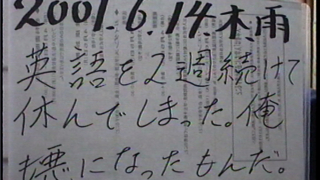 2001.6.14.木.雨
英語を2週続けて
休んでしまった。俺
も悪になったもんだ。